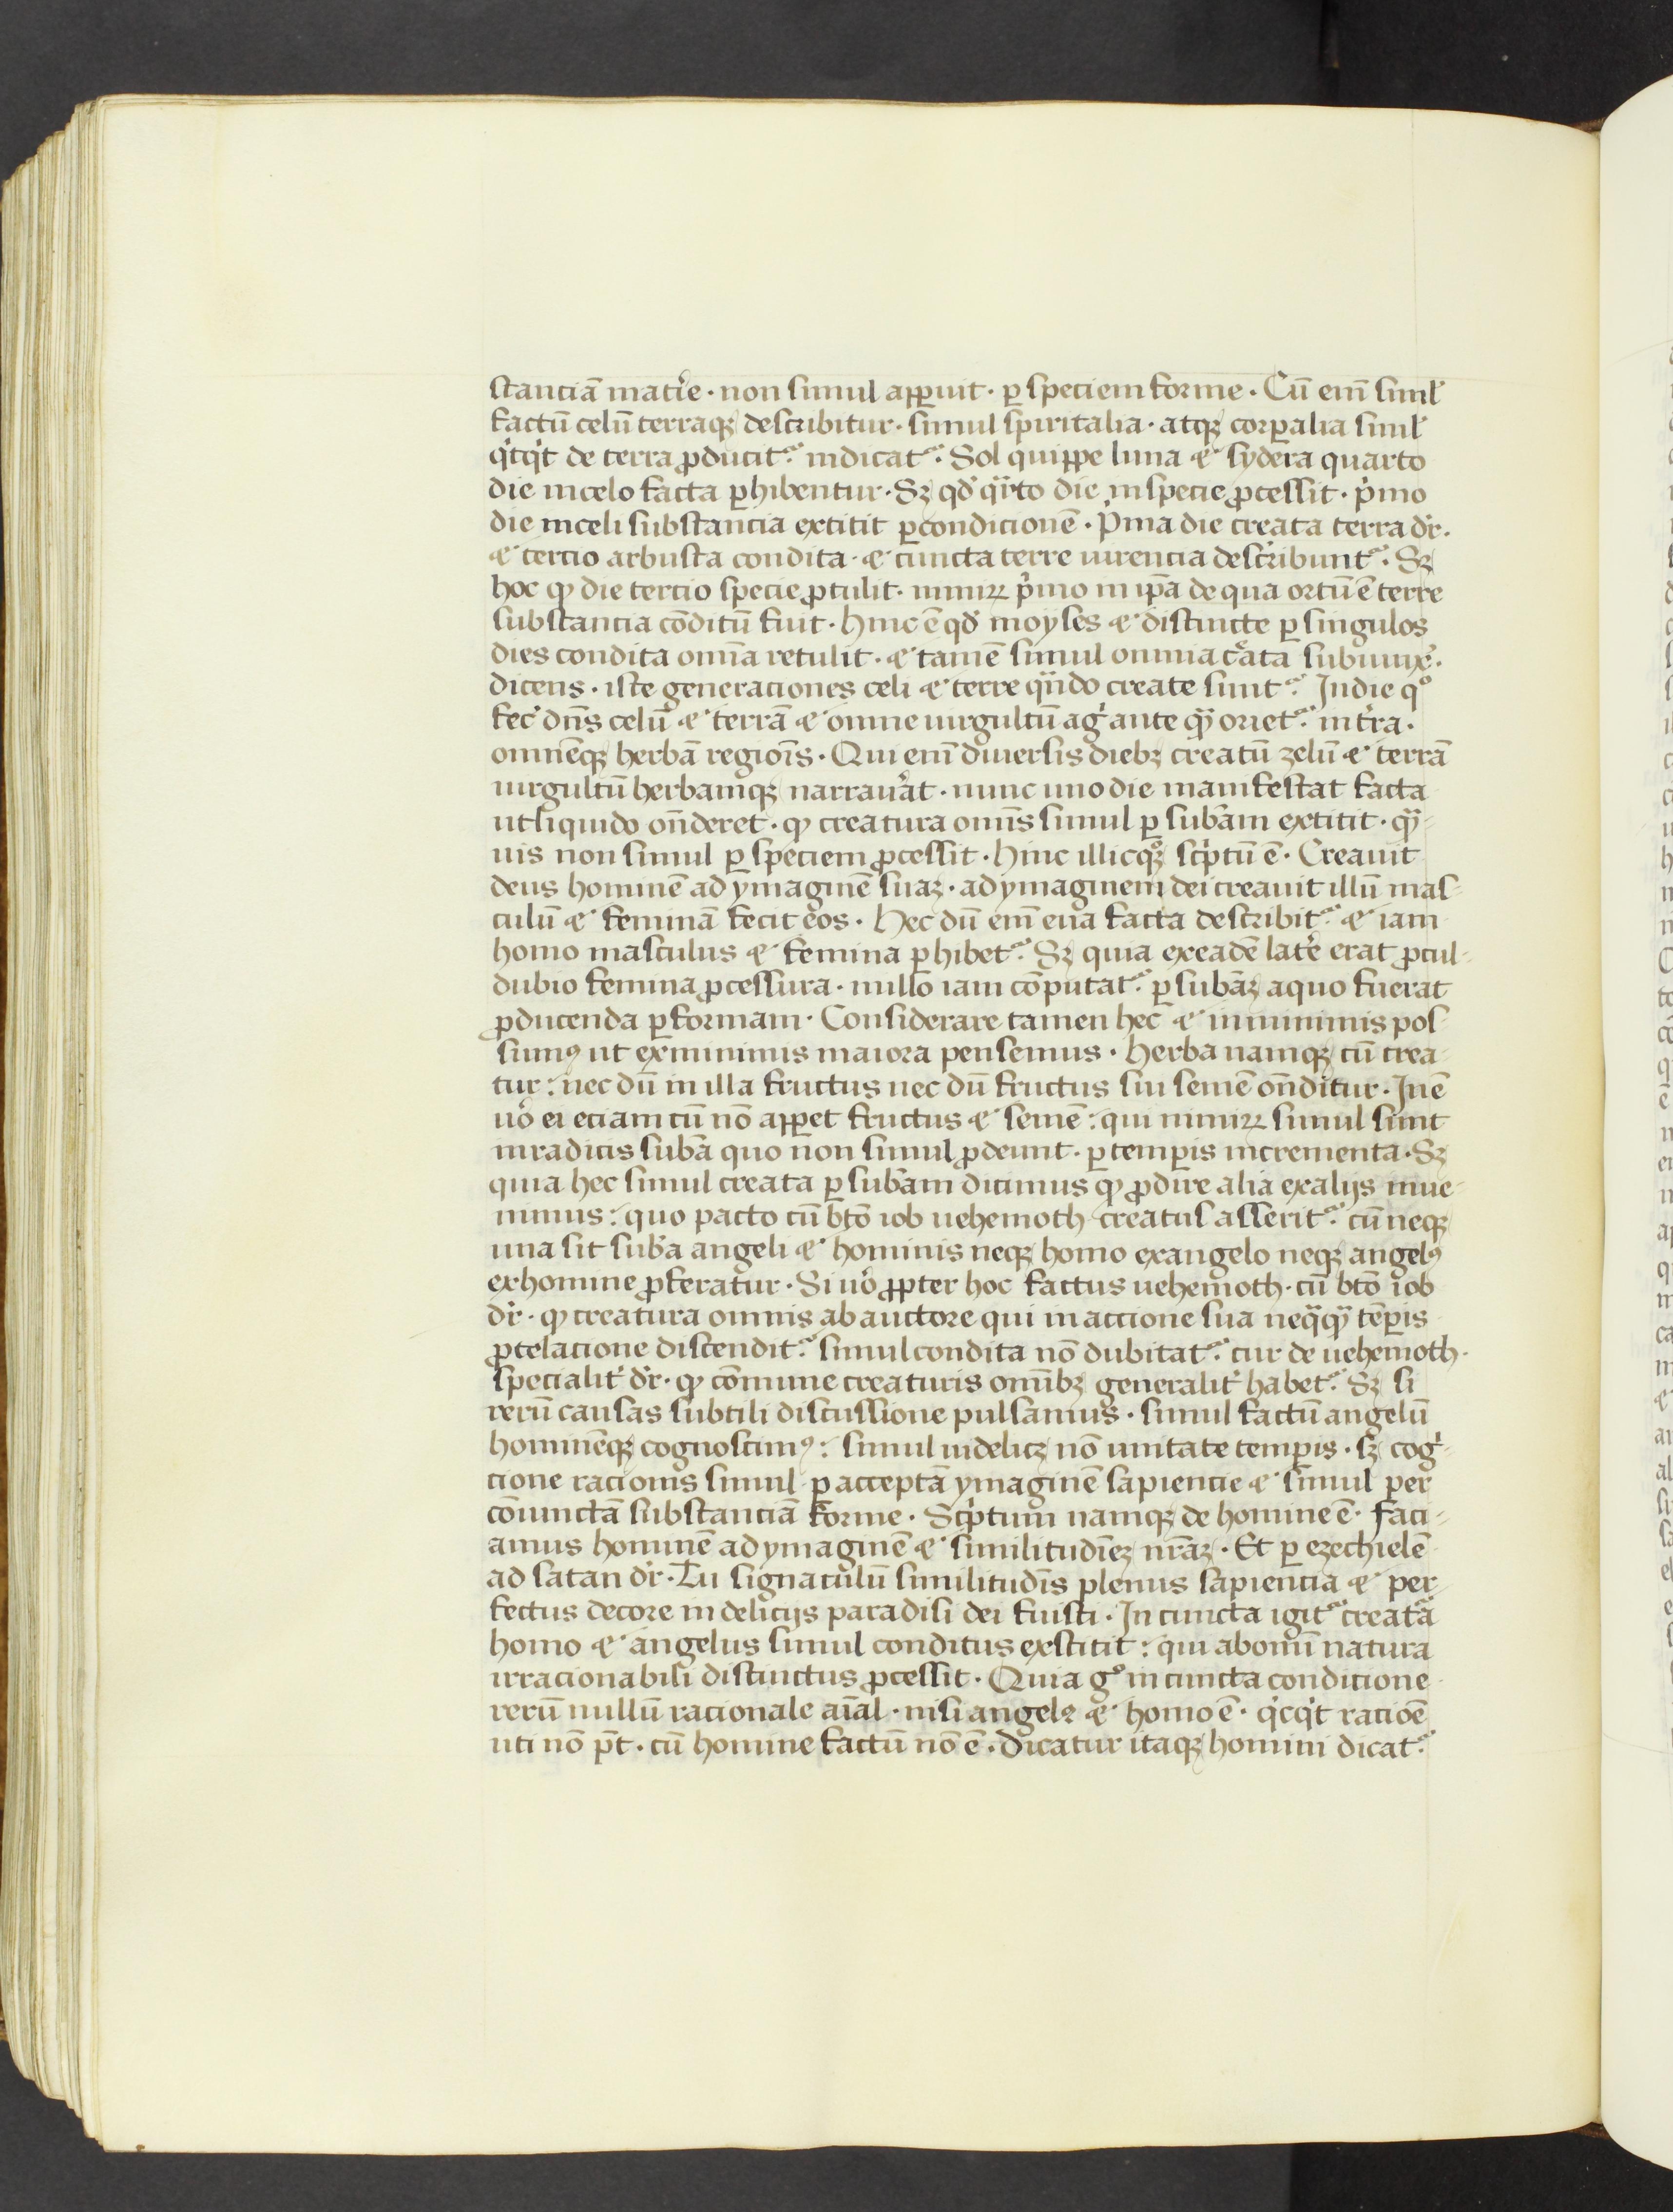 stanciā mat᷑ie · non simul apꝑuit · ꝑ speciem forme · Cū eni᷑ simĺ
factū celū terraqꝫ describitur · simul spiritalia · atqꝫ corꝑalia simĺ
qͥcqͥt de terra ꝓducit᷑ indicat᷑ Sol quippe luna ⁊ sydera quarto
die incelo facta ꝑhibentur · Sꝫ qd̓ qͣrto die inspecie ꝓcessit · pͥmo
die inceli substancia extitit ꝑcondicionē · Pͥma die creata terra dr̄ ·
⁊ tercio arbusta condita · ⁊ cuncta terre uirencia describunt᷑ · Sꝫ
hoc ꝙ die tercio specie ꝓtulit · nimiꝝ pͥmo in ip̄a de qua ortū ē terre
substantia cōditū fuit · Hinc ē qd̓ moyses ⁊ distincte ꝑ singulos
dies condita omīa retulit · ⁊ tamē simul omnia cͬata subiunx̓ ·
dicens · iste generaciones celi ⁊ terre qͣndo create sunt᷑ Indie qͦ
fec̓ dn̄s celū ⁊ terrā ⁊ omne uirgultū agͥ ante qͣ oriet᷑ int̓ra ·
omnēqꝫ herbā regiōis · Qui enī diuersis diebꝫ creatū zelū ⁊ terrā
uirgultū herbamqꝫ narrau̓at · nunc uno die manifestat facta
utliquido on̄deret · ꝙ creatura omīs simul ꝑ subā̓m extitit · qͣ-
uis non simul ꝑ speciem ꝓcessit · Hinc illicqꝫ scͥptū ē · Creauit
deus hominē ad ymaginē suaꝫ · ad ymaginem dei creauit illū mas-
culū ⁊ feminā fecit eos · Hec dū enī eua facta describit᷑ ⁊ iam
homo masculus ⁊ femina ꝑhibet᷑ Sꝫ quia exeadē lat̓e erat ꝓcul-
dubio femina ꝓcessura · nullo iam cōputat᷑ ꝑ subāꝫ aquo fuerat
ꝓducenda ꝑformam · Considerare tamen hec ⁊ inminimis pos-
sumꝰ ut exminimis maiora pensemus · Herba namqꝫ cū crea-
tur : nec dū in illa fructus nec dū fructus sui semē on̄ditur · Inē
uͦo ei eciam cū nō apꝑet fructus ⁊ semē : qui nimiꝝ simul sunt
inradicis subā quo non simul ꝓdeunt · ꝑ temꝑis incrementa · Sꝫ
quia hec simul creata ꝑ subā̓m dicimus ꝙ ꝓdire alia exalijs inue-
nimus : quo pacto cū btō iob uehemoth creatus asserit᷑ cū neqꝫ
una sit subā angeli ⁊ hominis neqꝫ homo exangelo neqꝫ angelꝰ
exhomine ꝓferatur · Si uͦo ꝓpter hoc factus uehemoth · cū btō iob
dr̄ · ꝙ creatura omnis ab auctore qui in accione sua neqͣqͣ tēꝑis
ꝓtelacione discendit᷑ simul condita nō dubitat᷑ cur de uehemoth ·
specialit̓ dr̄ · ꝙ cōmune creaturis omībꝫ generalit̓ habet᷑ Sꝫ si
rerū causas subtili discussione pulsamus · simul factū angelū
hominēqꝫ cognoscimꝰ : simul uidelicꝫ nō unitate temꝑis · sꝫ cogͥ-
cione racionis simul ꝑ acceptā ymaginē sapiencie ⁊ simul per
cōiunctā substanciā forme · Scͥptum namqꝫ de homine ē · faci-
amus hominē ad ymaginē ⁊ similitudīeꝫ nr̄aꝫ · Et ꝑ ezechielē
ad satan dr̄ · Tu signaculū similitudīs plenus sapiencia ⁊ per-
fectus decore in delicijs paradisi dei fuisti · In cuncta igit᷑ creatͣa
homo ⁊ angelus simul conditus exstitit : qui abomī natura
irracionabili distinctus ꝓcessit · Quia gͦ in cuncta condicione
rerū nullū racionale aīal · nisi angelꝰ ⁊ homo ē · qͥcqͥt raciōe
uti nō pt̄ · cū homine factū nō ē · dicatur itaqꝫ homini dicat᷑